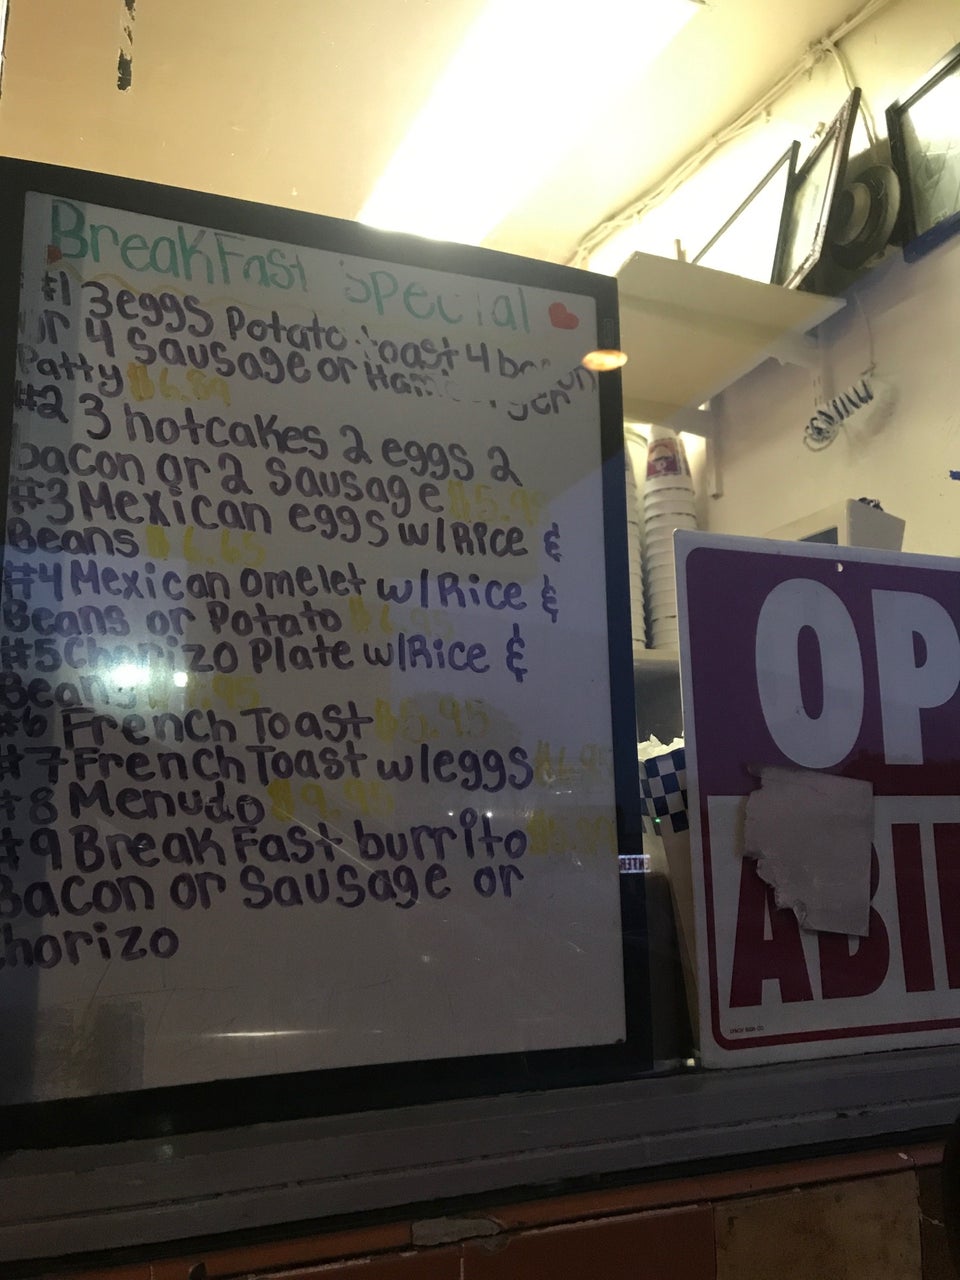 BreakFast Special
#1 3 eggs Potato toast 4 bacon
or 4 Sausage or Hamburger
Patty $6.89
#2 3 hotcakes 2 eggs 2
bacon or 2 Sausage
#3 Mexican eggs w/Rice &
Beans $6.65
#4 Mexican Omelet w/Rice &
Beans or Potato
#5 Chorizo Plate w/Rice &
Beans
#6 French Toast $5.95
#7 French Toast w/eggs
#8 Menudo $9.95
#9 BreakFast burrito
Bacon or Sausage or
Chorizo
OP
ABI